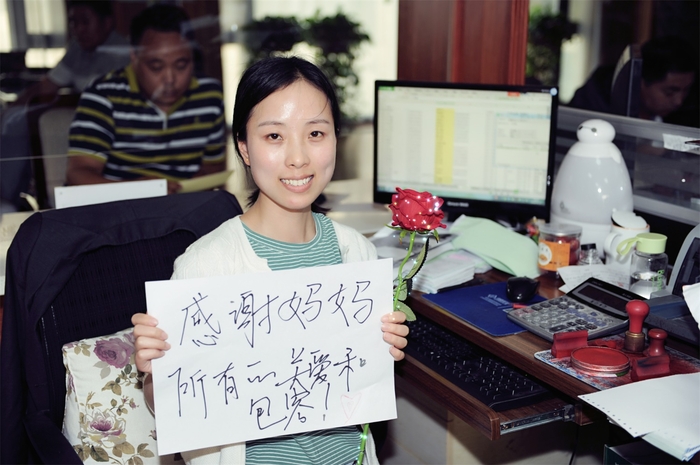 感谢妈妈
所有的关爱和
包容！